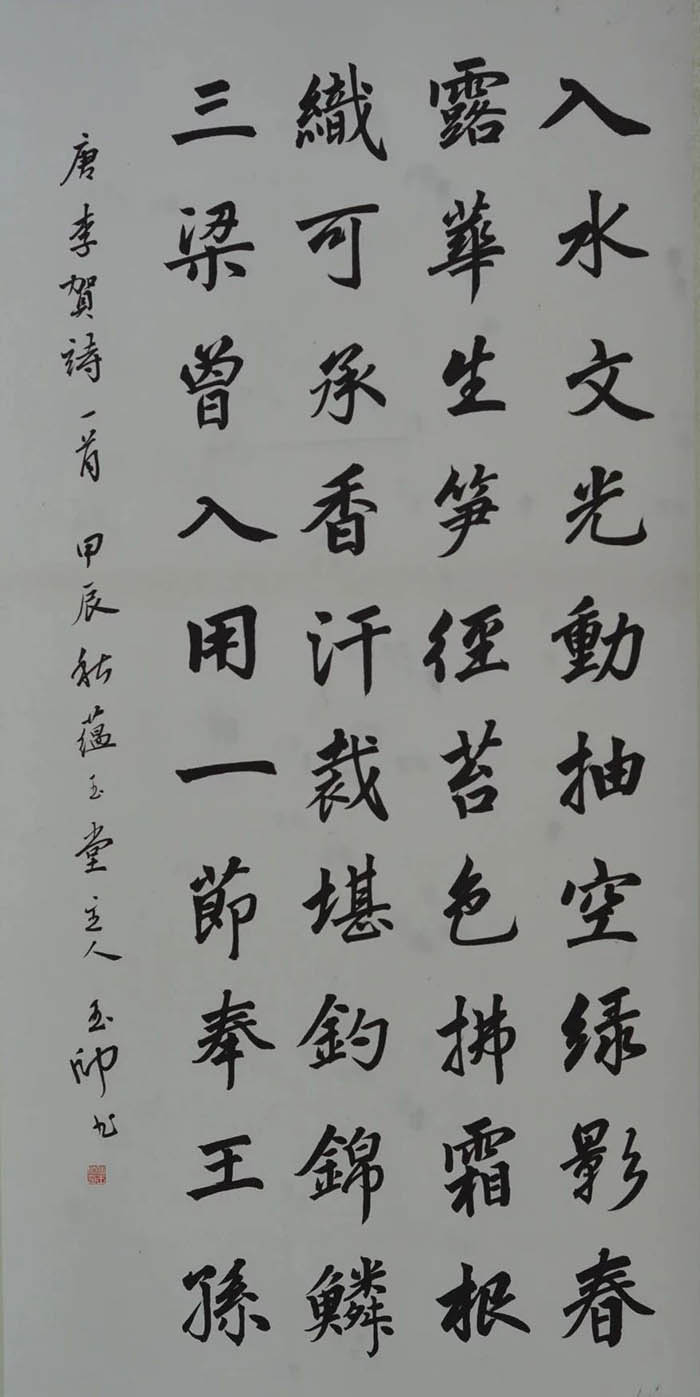 入水文光動抽空绿影春
露華生笋徑苔色拂霜根
織可承香汗裁堪釣錦鱗
三梁曾入用一節奉王孫
唐李賀詩一首 甲辰秋蘊玉堂主人 玉帅书